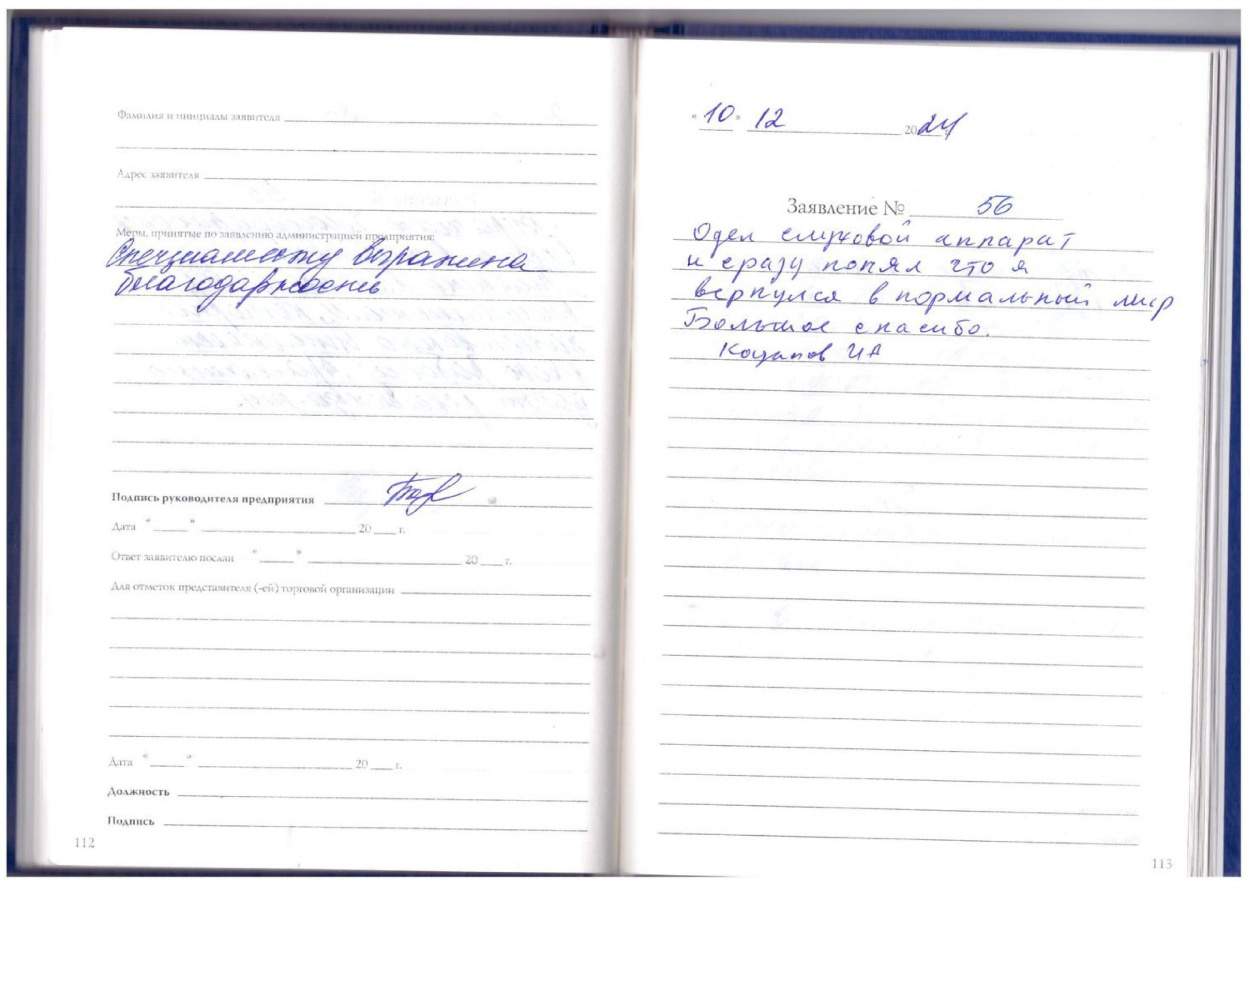 Фамилия и инициалы заявителя
Адрес заявителя
Меры, принятые по заявлению администрацией предприятия:
Специалисту выражена
благодарность
Подпись руководителя предприятия
Дата "___" ___ 20 ___ г.
Ответ заявителю послан "___" ___ 20 ___ г.
Для отметок представителя (-ей) торговой организации
Дата "___" ___ 20 ___ г.
Должность
Подпись
112
"10" 12 2024
Заявление № 56
Одел слуховой аппарат
и сразу понял что я
вернулся в нормальный мир
Большое спасибо.
ИА
113